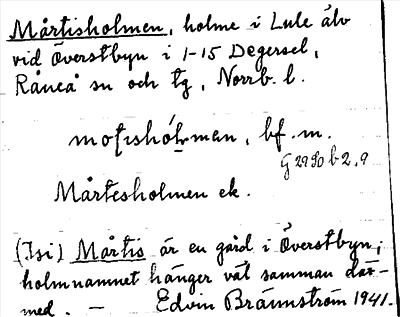 Mårtisholmen, holme i Lule älv
vid Överstbyn i 1-15 Degersel,
Råneå sn och tg, Norrb. l.
moṭisholman, bf. m.
G 2990 b 2,9
Mårtesholmen ek.
(Isi) Mårtis är en gård i Överstbyn;
holmnamnet hänger väl samman där-
med. – Edvin Brännström 1941.